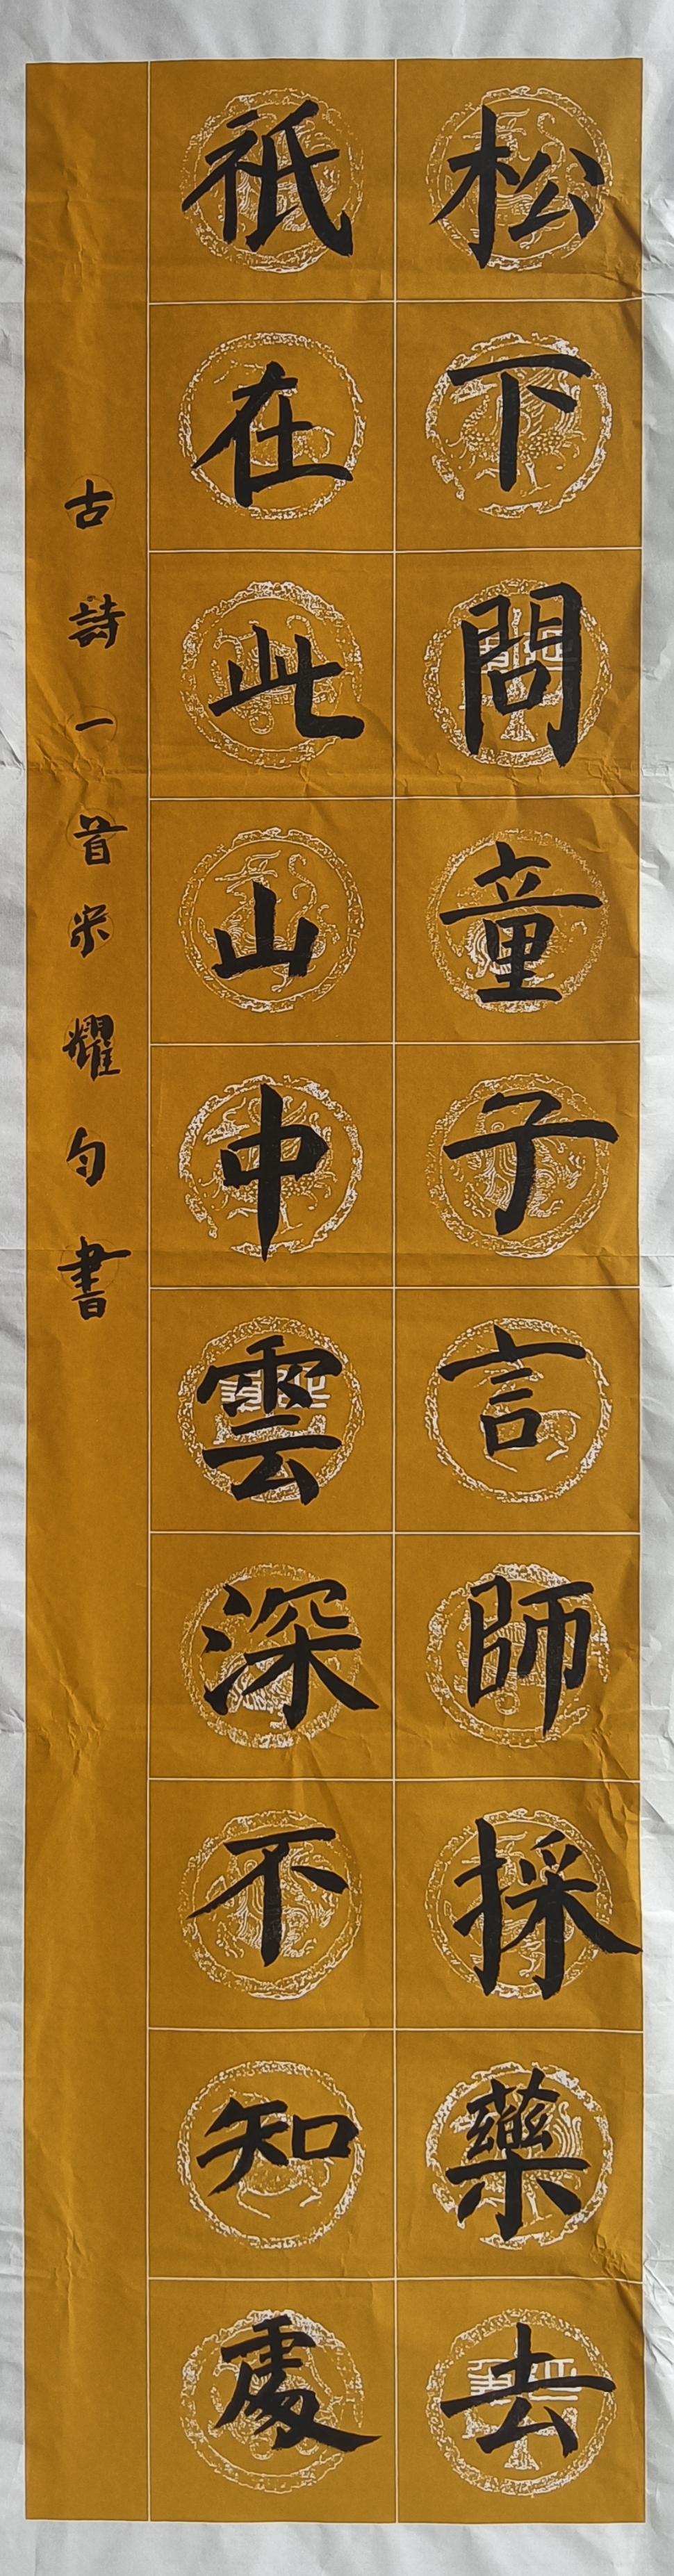 松下問童子言師採藥去
祇在此山中雲深不知處
古詩一首宋耀勻書